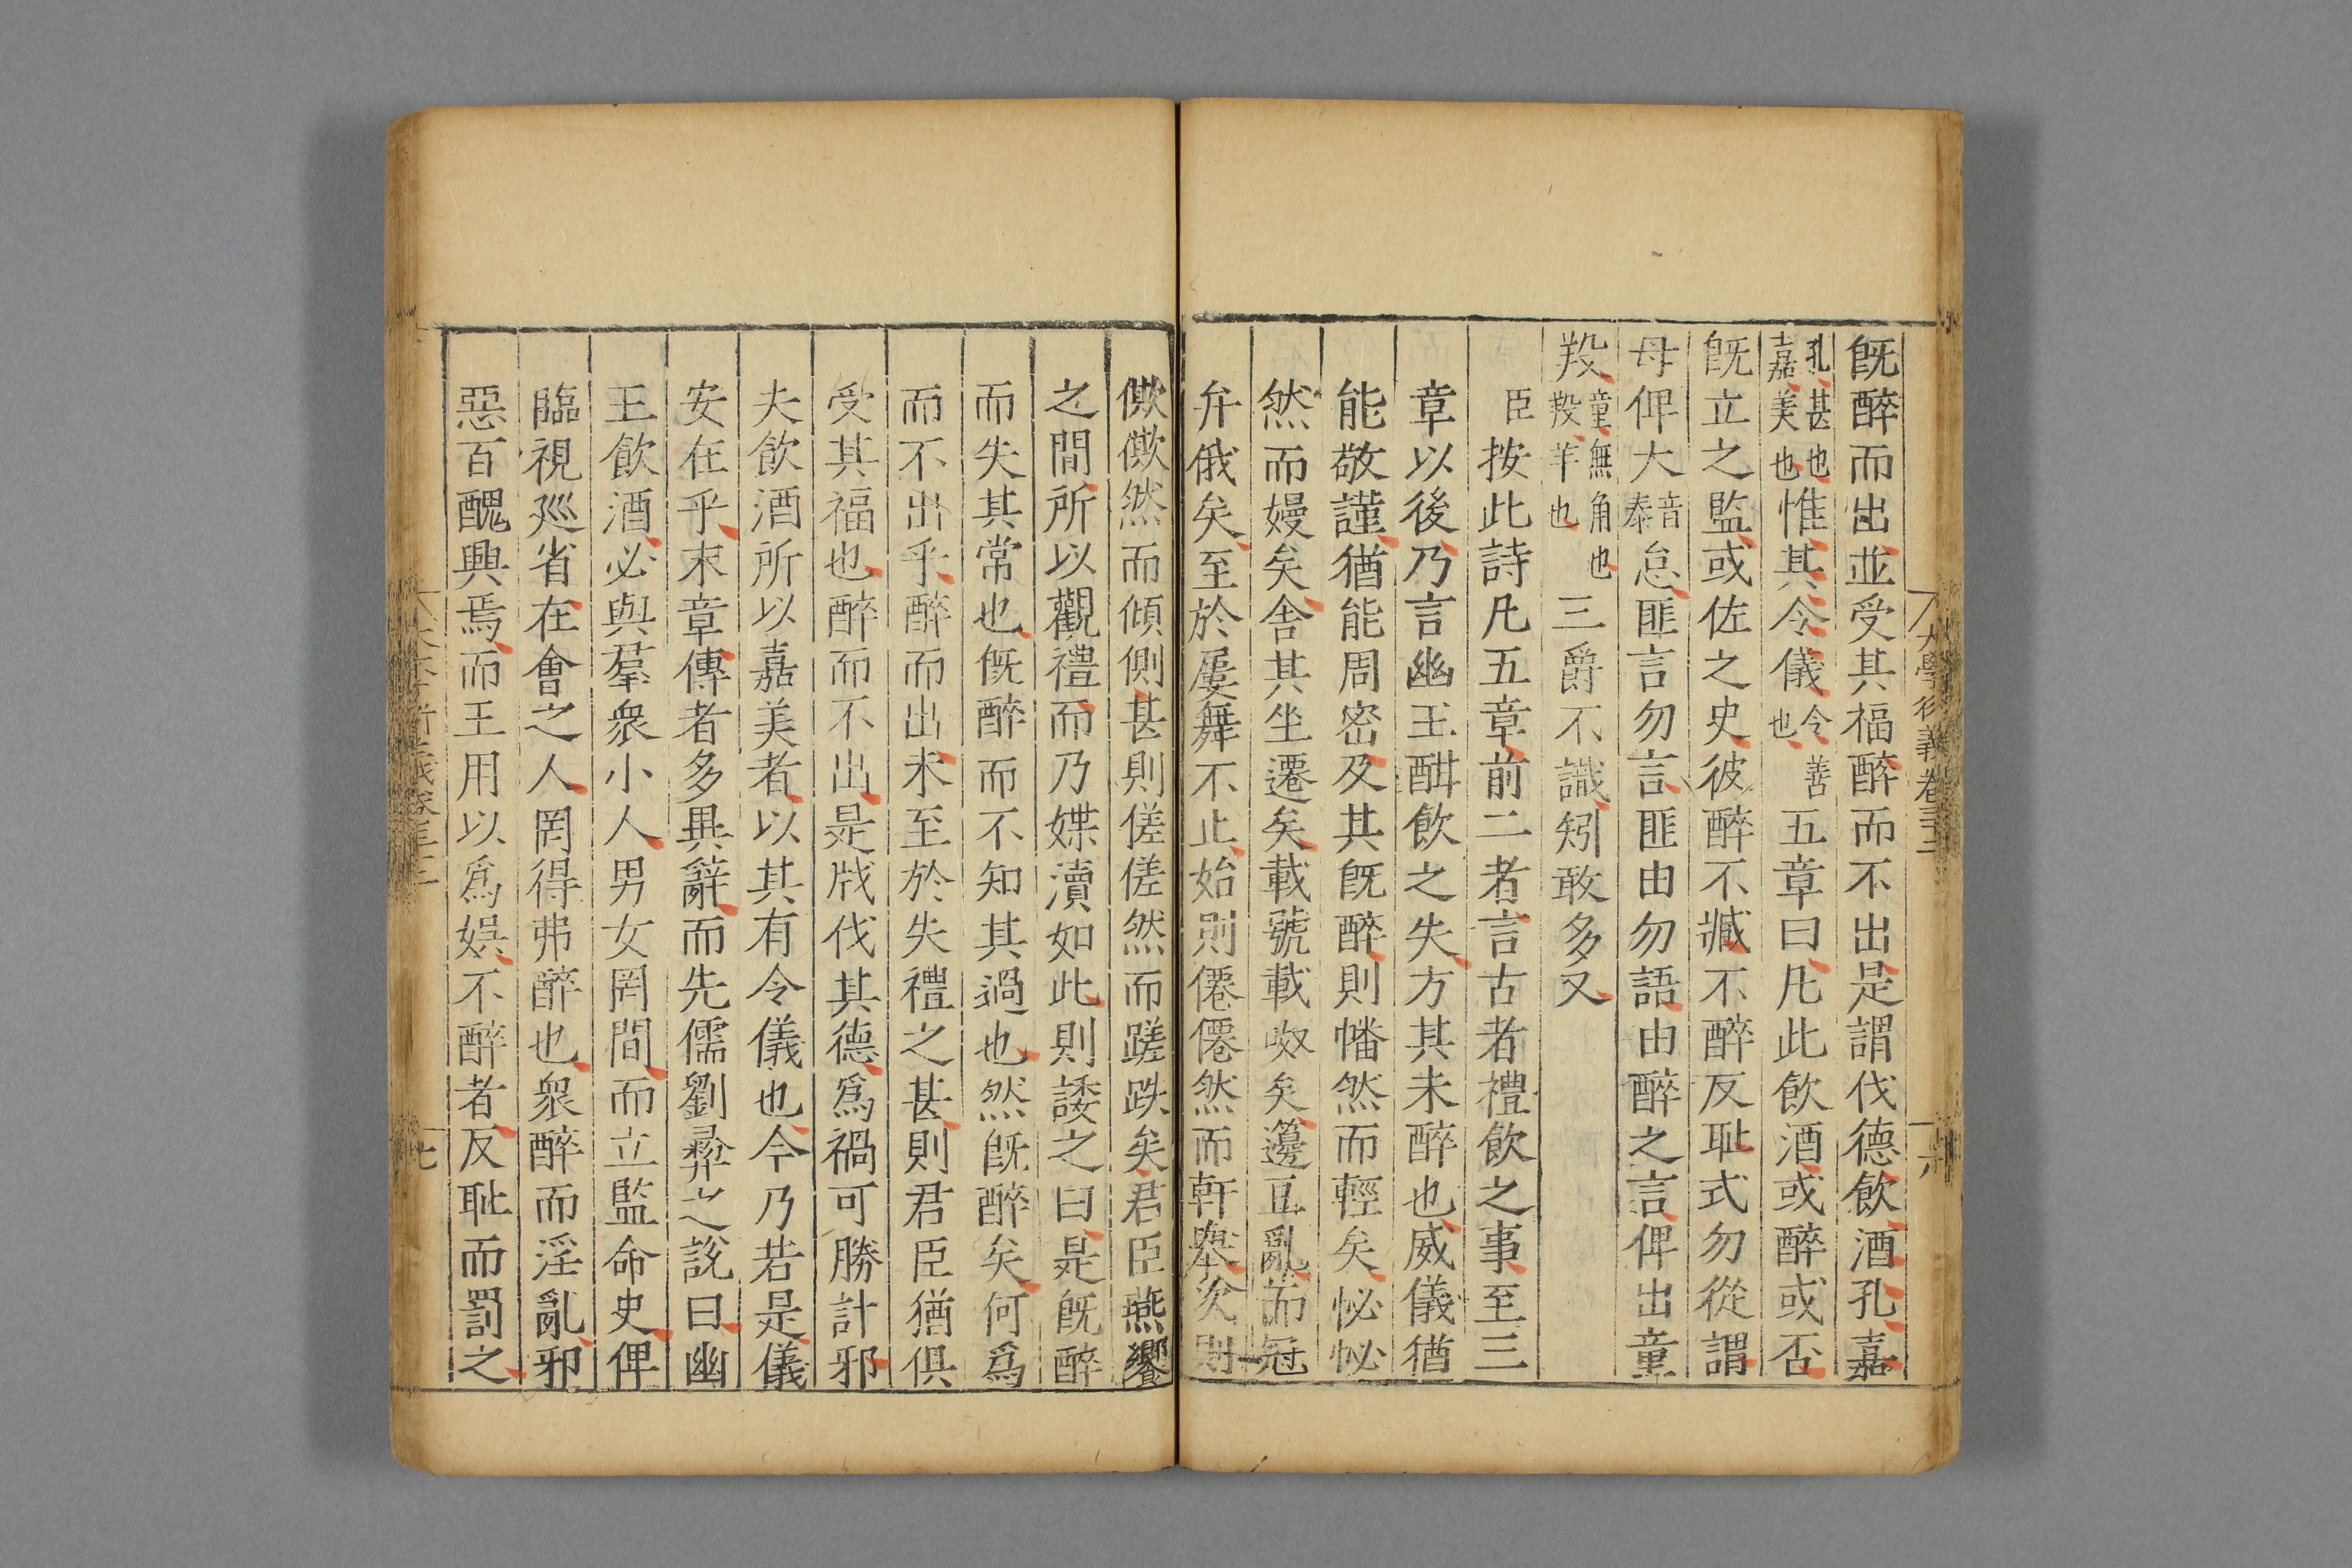 既醉而出並受其福醉而不出是謂伐德飲酒孔嘉
孔甚也嘉美也惟其令儀令善也五章曰凡此飲酒或醉或否
既立之監或佐之史彼醉不臧不醉反耻式勿從謂
毋俾大音泰怠匪言勿言匪由勿語由醉之言俾出童
羖童無角也羖羊也三爵不識矧敢多又
臣按此詩凡五章前二者言古者禮飲之事至三
章以後乃言幽王酣飲之失方其未醉也威儀猶
能敬謹猶能周密及其既醉則幡然而輕矣怭怭
然而嫚矣舍其坐遷矣載號載呶矣籩豆亂而冠
弁俄矣至於屢舞不止始則僊僊然而軒舉次則
僛僛然而傾側甚則傞傞然而蹉跌矣君臣燕饗
之間所以觀禮而乃媟瀆如此則諉之曰是既醉
而失其常也既醉而不知其過也然既醉矣何爲
而不出乎醉而出未至於失禮之甚則君臣猶俱
受其福也醉而不出是戕伐其德爲禍可勝計邪
夫飲酒所以嘉美者以其有令儀也今乃若是儀
安在乎末章傳者多異辭而先儒劉彛之說曰幽
王飲酒必與羣衆小人男女罔間而立監命史俾
臨視廵省在會之人罔得弗醉也衆醉而淫亂邪
惡百醜興焉而王用以爲娯不醉者反耻而罰之
大學衍義卷三十三
六
七